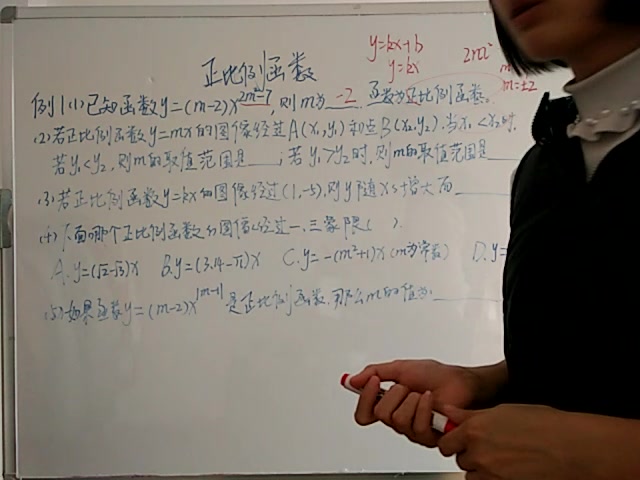 正比例函数
y=kx+b
y=kx
m=±2
例1(1)已知函数y=(m-2)x^{2m²-7},则m为 -2 函数为正比例函数。
(2)若正比例函数y=mx的图像经过A(x₁,y₁)和点B(x₂,y₂),当x₁<x₂时,
若y₁<y₂,则m的取值范围是____;若y₁>y₂时,则m的取值范围是____
(3)若正比例函数y=kx的图像经过(1,-5),则y随x的增大而____
(4)下面哪个正比例函数的图像经过一、三象限( ).
A.y=(√2-√3)x B.y=(3.14-π)x C.y=-(m²+1)x(m为常数) D.y=
(5)如果函数y=(m-2)x^{|m-1|}是正比例函数,那么m的值为:____